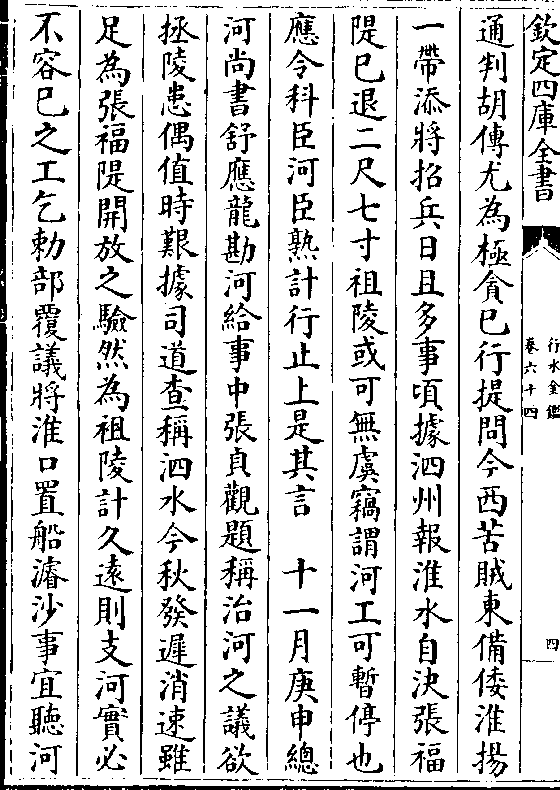 欽定四庫全書
行水金鑑
卷六十四
四
通判胡傳尤為極貪已行提問今西苦賊東備倭淮揚
一帶添將招兵日且多事頃據泗州報淮水自決張福
隄已退二尺七寸祖陵或可無虞竊謂河工可暫停也
應令科臣河臣熟計行止上是其言　十一月庚申總
河尚書舒應龍勘河給事中張貞觀題稱治河之議欲
拯陵患偶值時艱據司道查稱泗水今秋發遲消速雖
足為張福隄開放之驗然為祖陵計久遠則支河實必
不容已之工乞勅部覆議將淮口置船濬沙事宜聽河